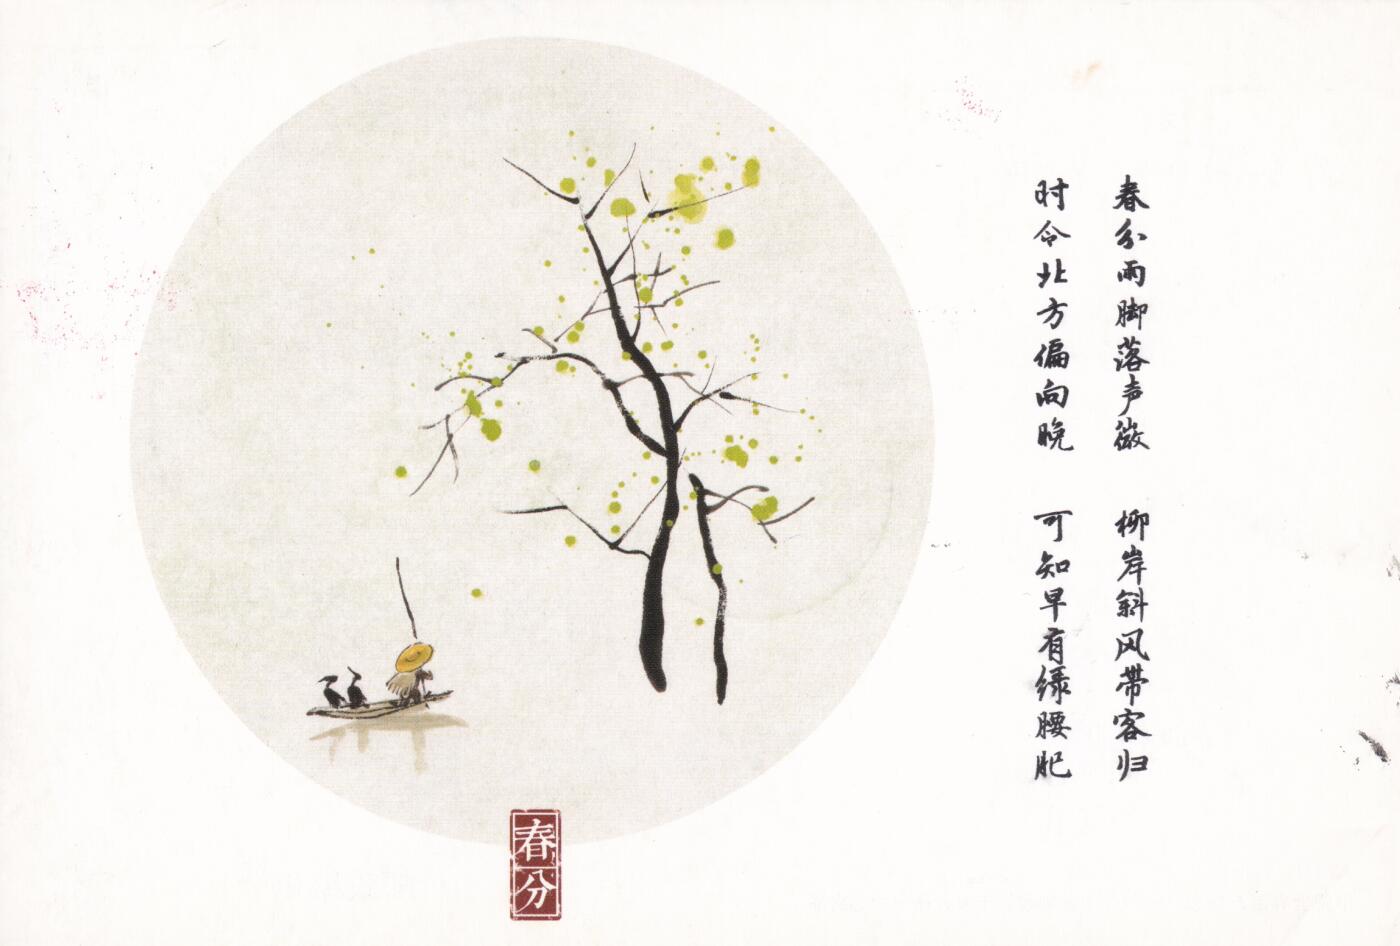 春分雨脚落声微 柳岸斜风带客归
时令北方偏向晚 可知早有绿腰肥
春分